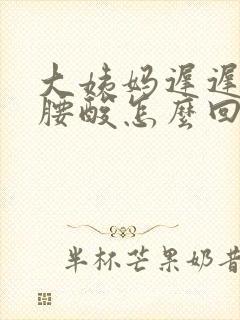 大姨妈遲遲
腰酸怎麼回
半杯芒果奶昔